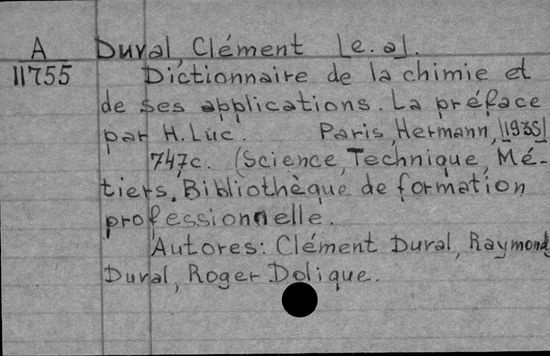 A Duval, Clément [e.a].
11755 Dictionnaire de la chimie et
de ses applications. La préface
par H. Luc. Paris, Hermann, [1935]
747,c. (Science, Technique, Mé-
tiers. Bibliothèque de formation
professionnelle.
Autores: Clément Duval, Raymond
Duval, Roger Dolique.